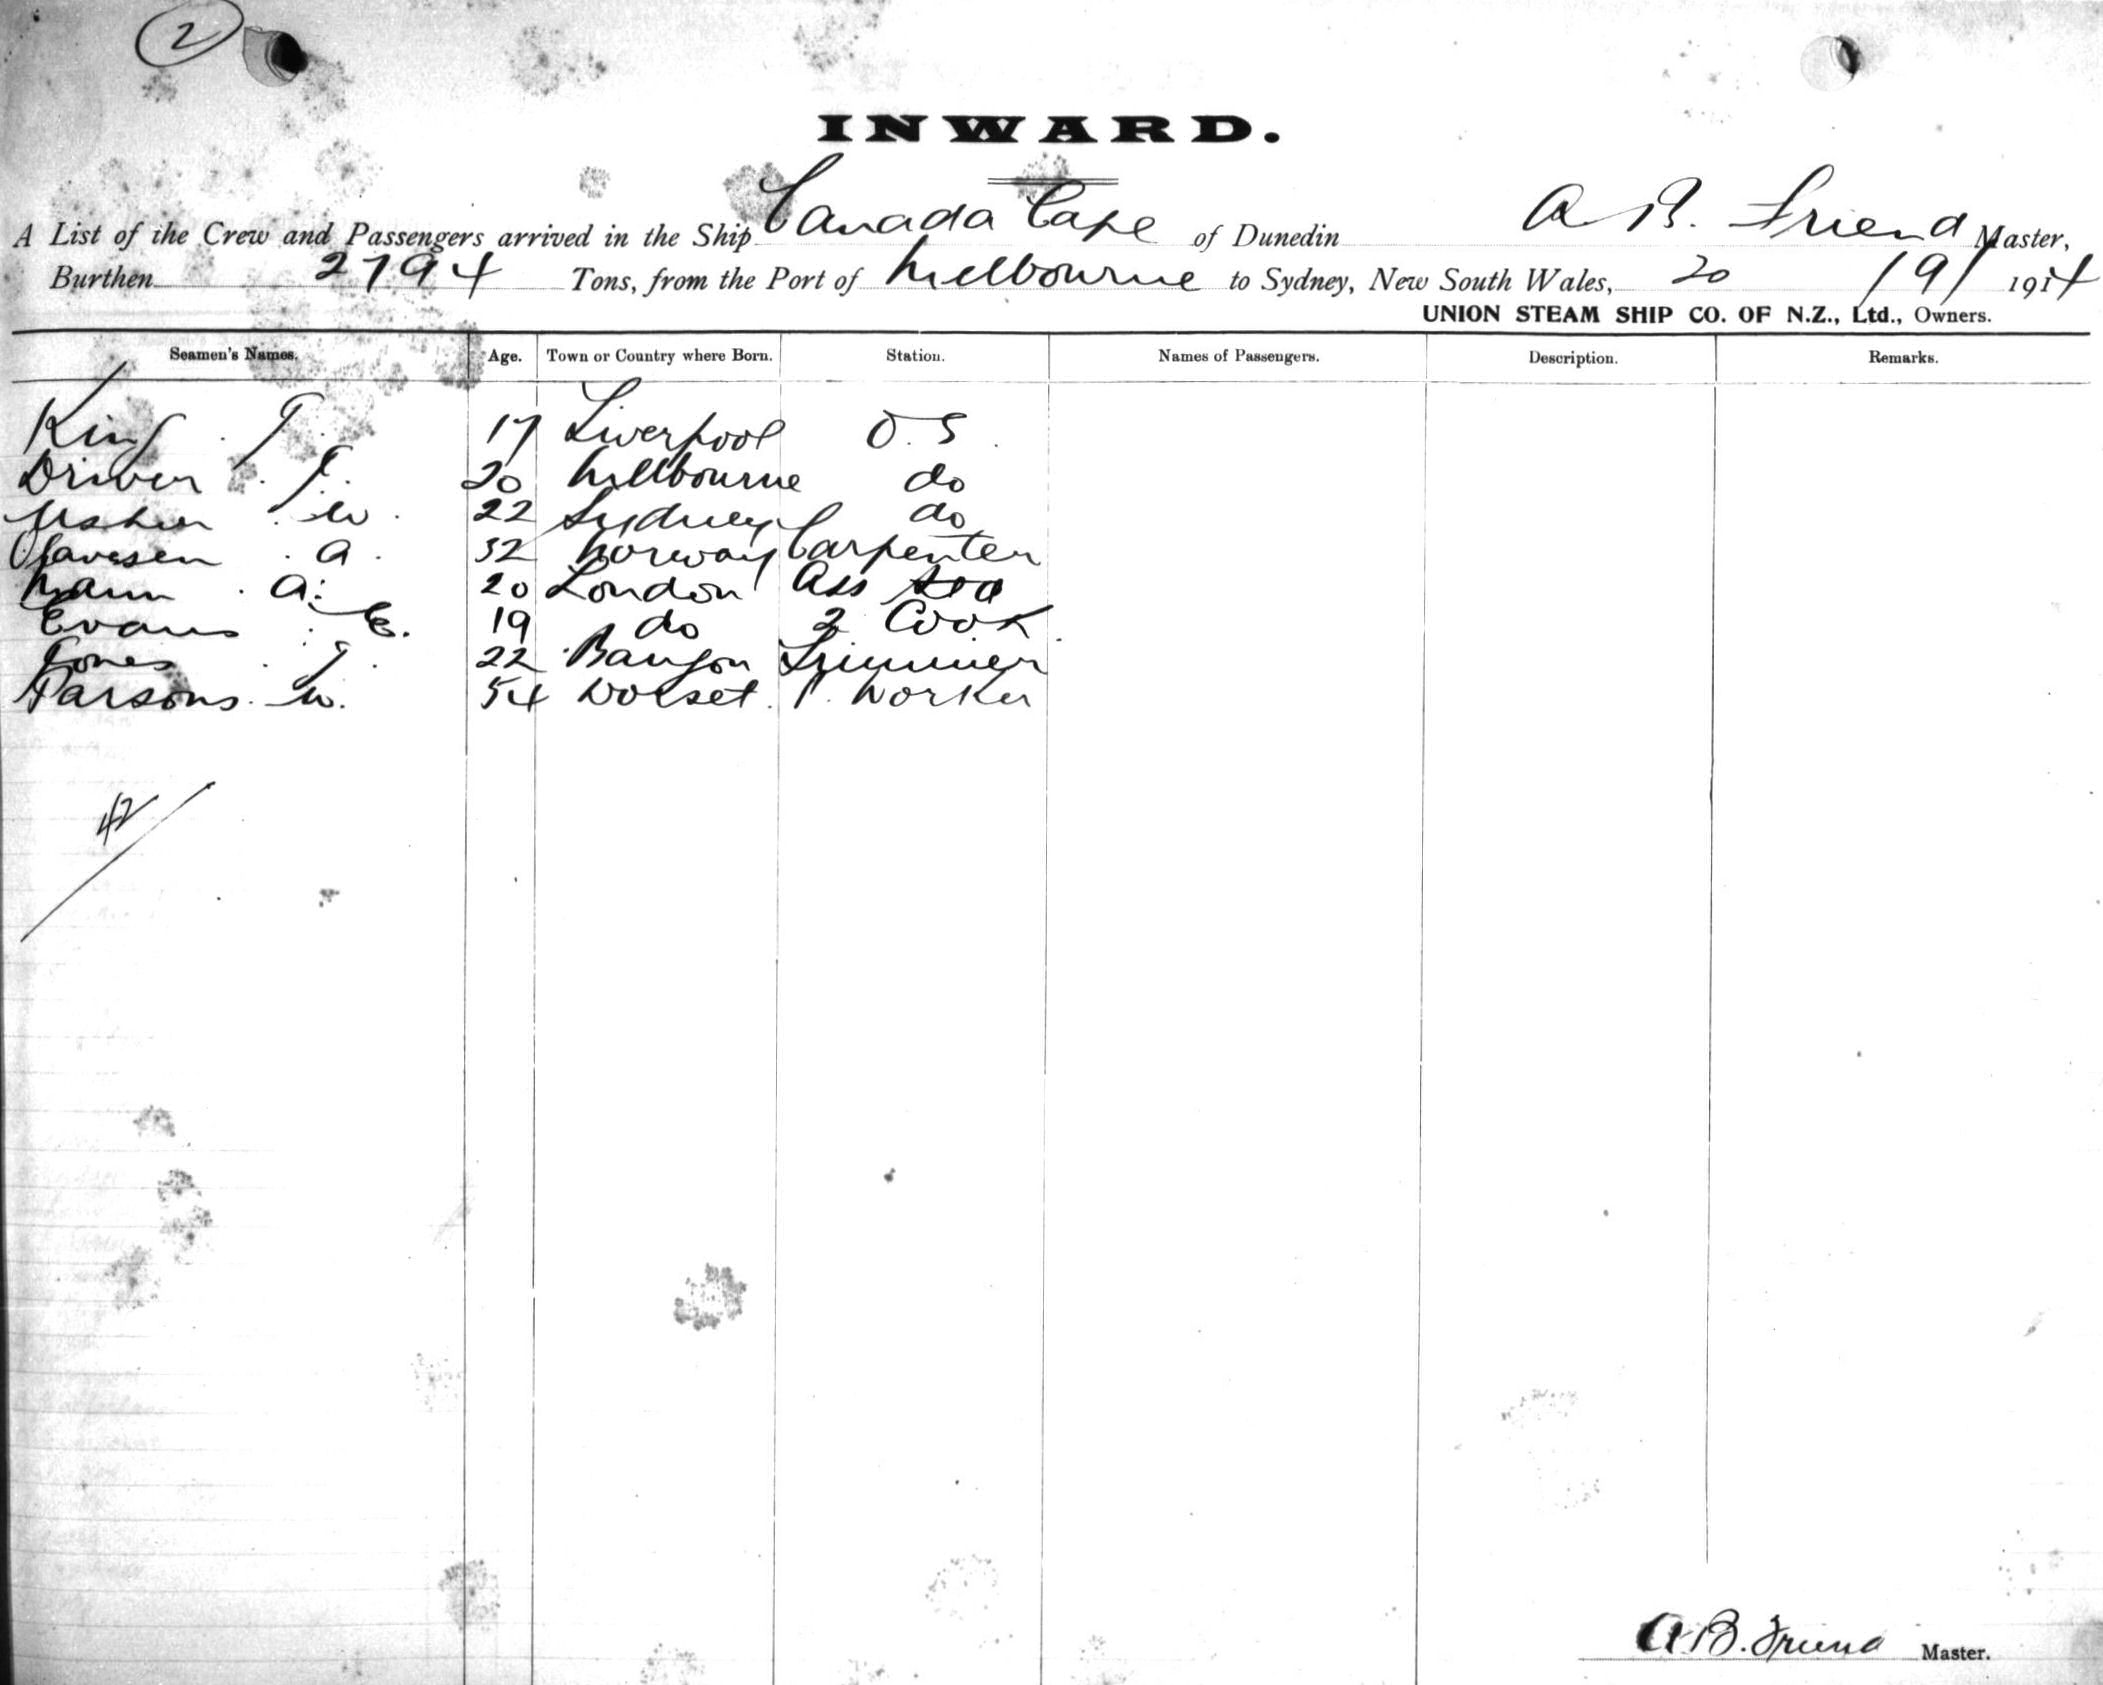 2
INWARD.
A List of the Crew and Passengers arrived in the Ship Canada Cape of Dunedin A B. Friend Master,
Burthen 2794 Tons, from the Port of Melbourne to Sydney, New South Wales, 20 / 9 / 1914
UNION STEAM SHIP CO. OF N.Z., Ltd., Owners.
Seamen's Names. Age. Town or Country where Born. Station. Names of Passengers. Description. Remarks.
King . T. 17 Liverpool O. S.
Driver . T. 20 Melbourne do
Usher . W. 22 Sydney do
Olavesen . A. 32 Norway Carpenter
Mann . A. 20 London Ass
Evans . E. 19 do 2 Cook
Jones . T. 22 Bangor Trimmer
Parsons. W. 54 Dorset. P. Worker
42
A.B. Friend Master.